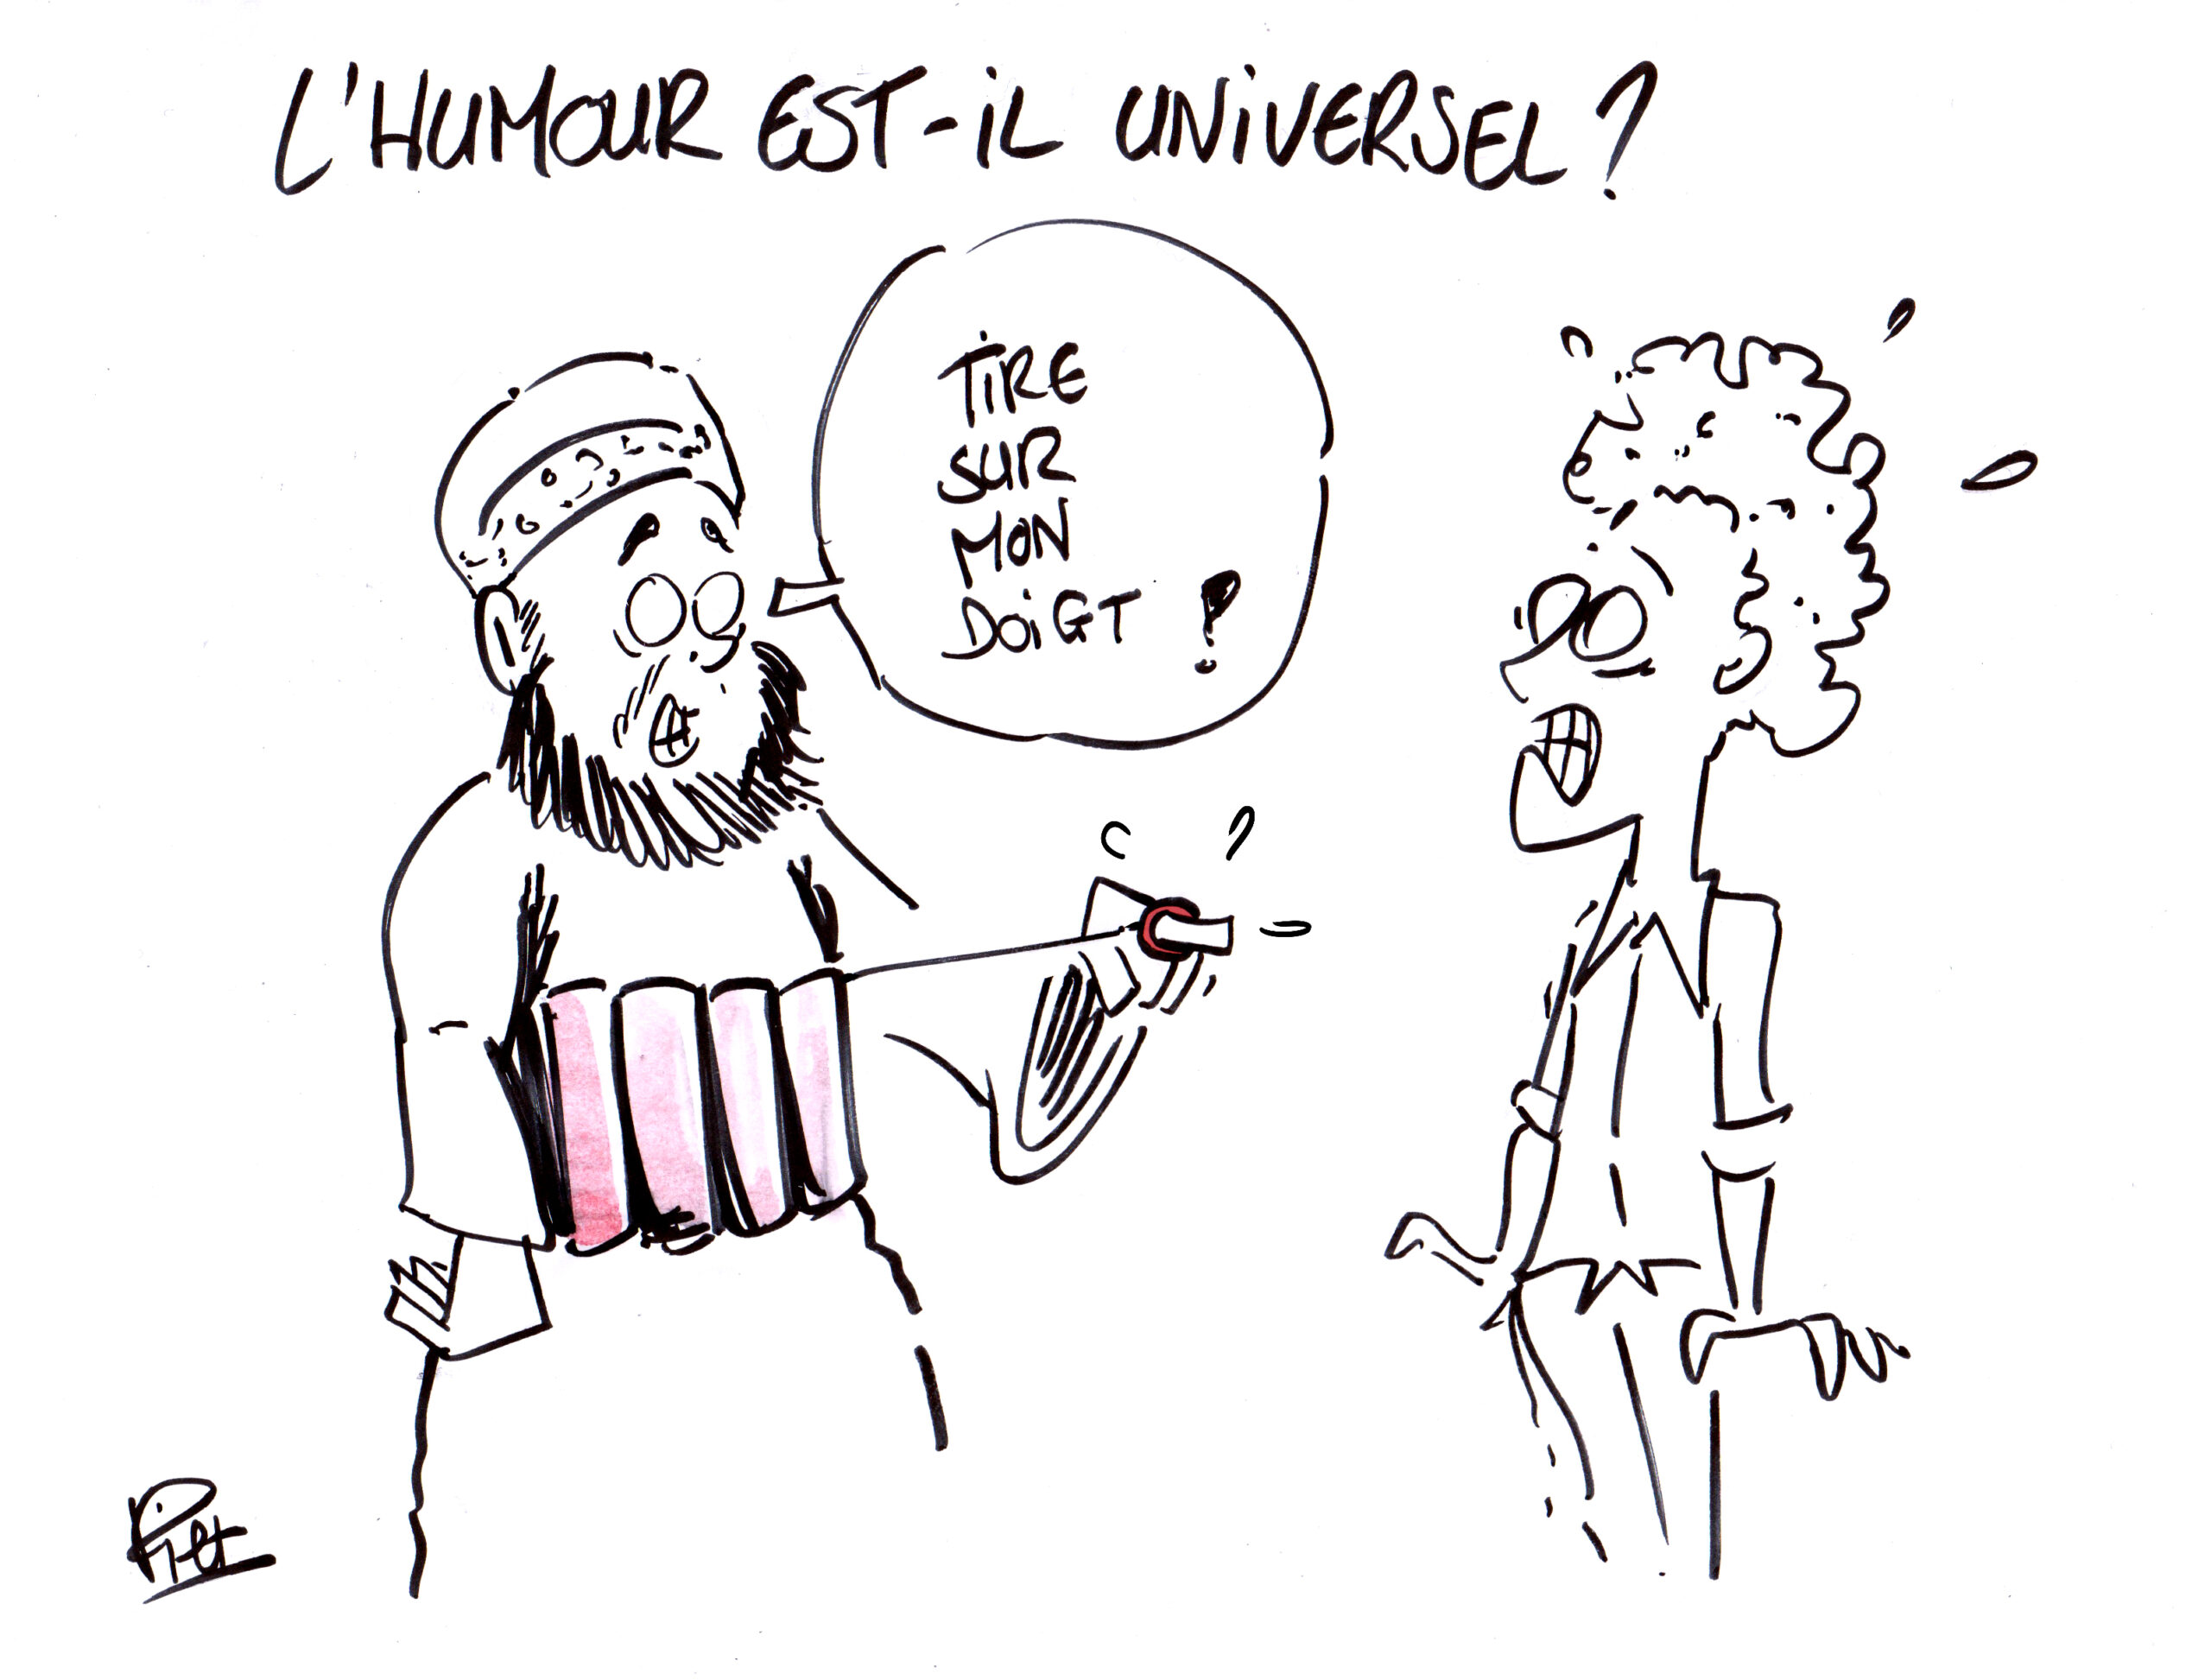 L'HUMOUR EST-IL UNIVERSEL ?
TIRE
SUR
MON
DOIGT !